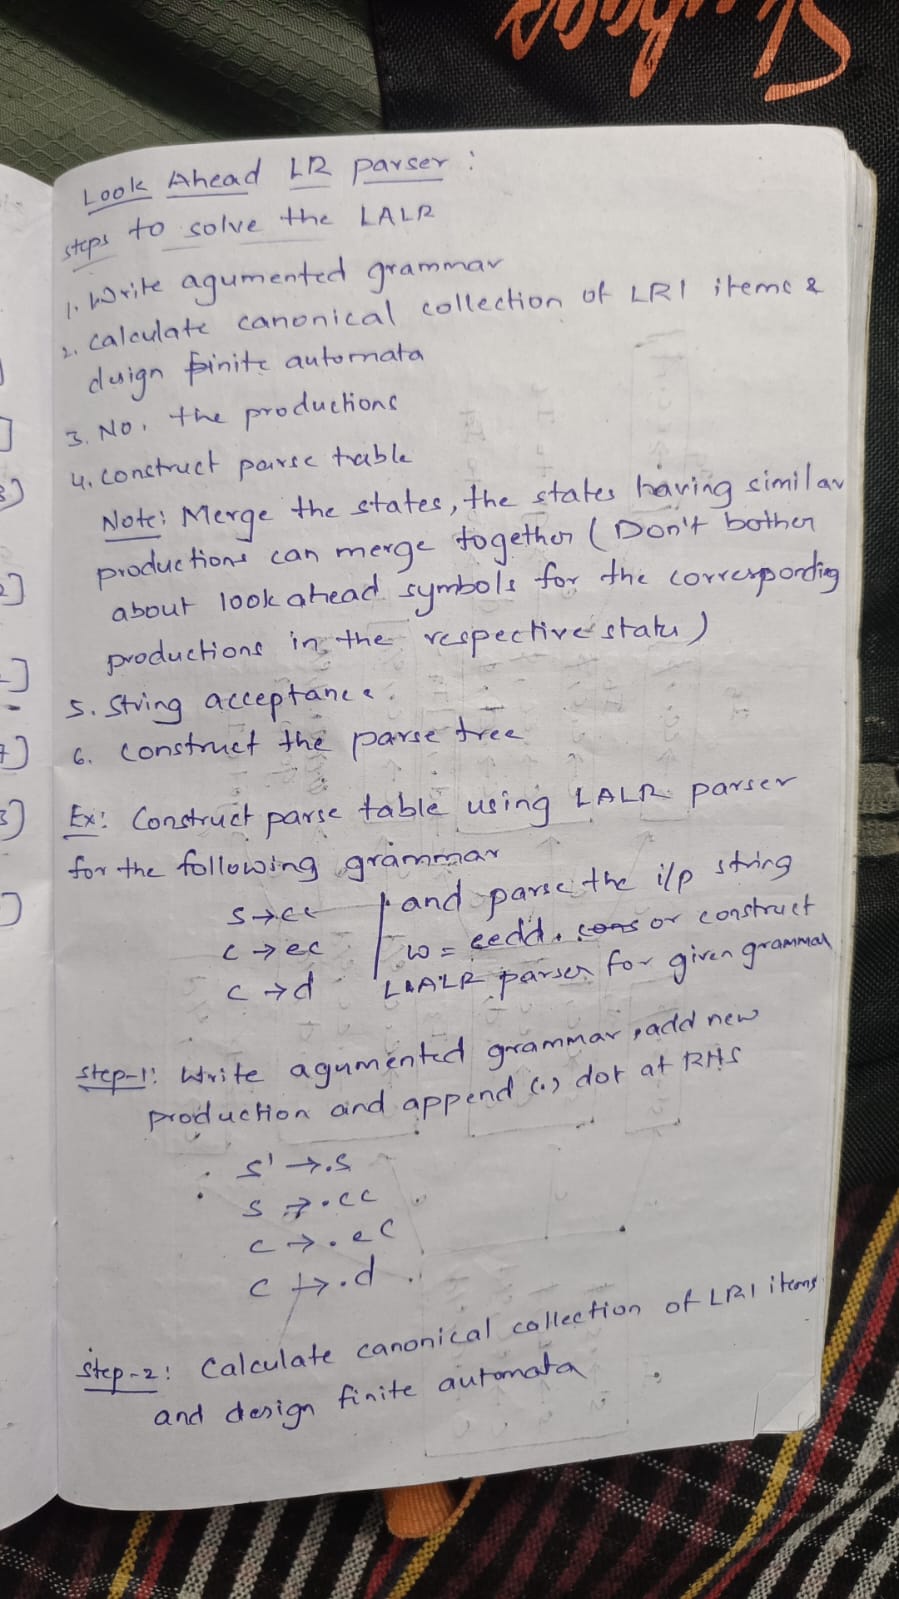 Look Ahead LR parser :
steps to solve the LALR
1. Write agumented grammar
2. calculate canonical collection of LR1 items &
design finite automata
3. No. the productions
4. construct parse table
Note: Merge the states, the states having similar
productions can merge together (Don't bother
about look ahead symbols for the corresponding
productions in the respective state)
5. String acceptance.
6. construct the parse tree
Ex: Construct parse table using LALR parser
for the following grammar
S→CC
C→eC
C→d
and parse the i/p string
w = eedd. or construct
LALR parser for given grammar
Step-1: Write agumented grammar, add new
production and append (.) dot at RHS
S'→.S
S→.CC
C→.eC
C→.d
Step-2: Calculate canonical collection of LR1 items
and design finite automata